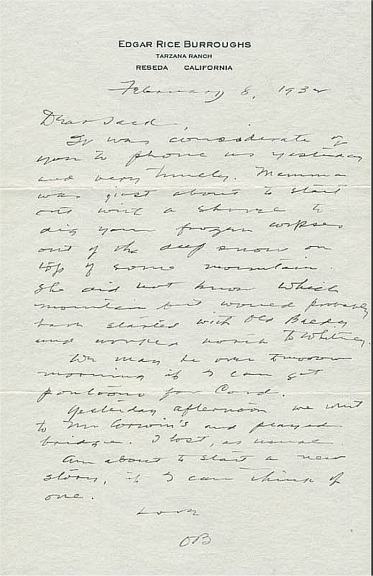 EDGAR RICE BURROUGHS
TARZANA RANCH
RESEDA CALIFORNIA
February 8, 1932
Dear Jack,
It was considerate of
you to phone us yesterday
and very timely. Mamma
was just about to start
out with a shovel to
dig your frozen corpses
out of the deep snow on
top of some mountain.
She did not know which
mountain but would probably
have started with Old Baldy
and worked north to Whitney.
We may be over tomorrow
morning if I can get
pontoons for Cord.
Yesterday afternoon we went
to Mr. Corwin's and played
bridge. I lost, as usual
Am about to start a new
story, if I can think of
one.
Love
OB